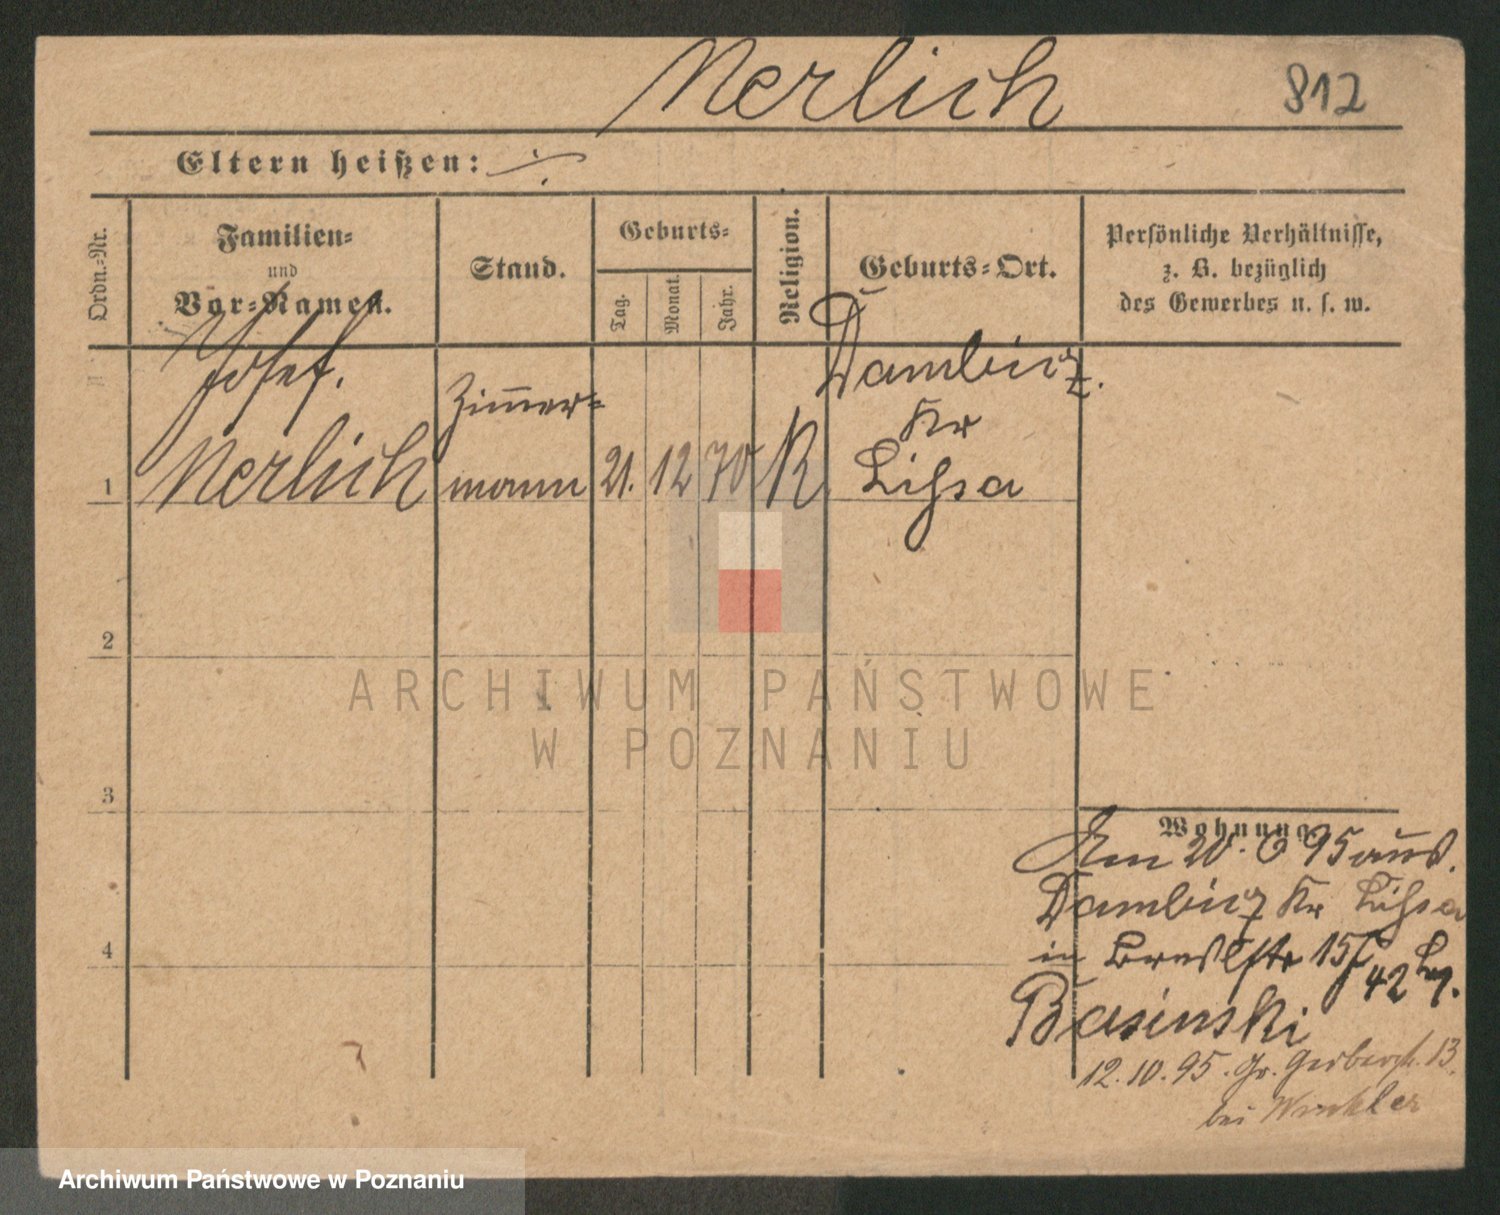 Nerlich
812
Eltern heißen: ⁒
Ordn.-Nr.
Familien-
und
Vor-Namen.
Stand.
Geburts-
Tag.
Monat.
Jahr.
Religion.
Geburts-Ort.
Persönliche Verhältnisse,
z. B. bezüglich
des Gewerbes u. s. w.
1
Josef.
Nerlich
Zim̅er-
mann
21. 12 70 K
Dambitz.
Kr
Lissa
2
ARCHIWUM PAŃSTWOWE
W POZNANIU
3
Wohnung
Am 20. 6 95 aus.
Dambitz Kr Lissa
in
42
Basinski
12.10.95. Gr. Gerberstr. 13.
bei Winkler
4
Archiwum Państwowe w Poznaniu